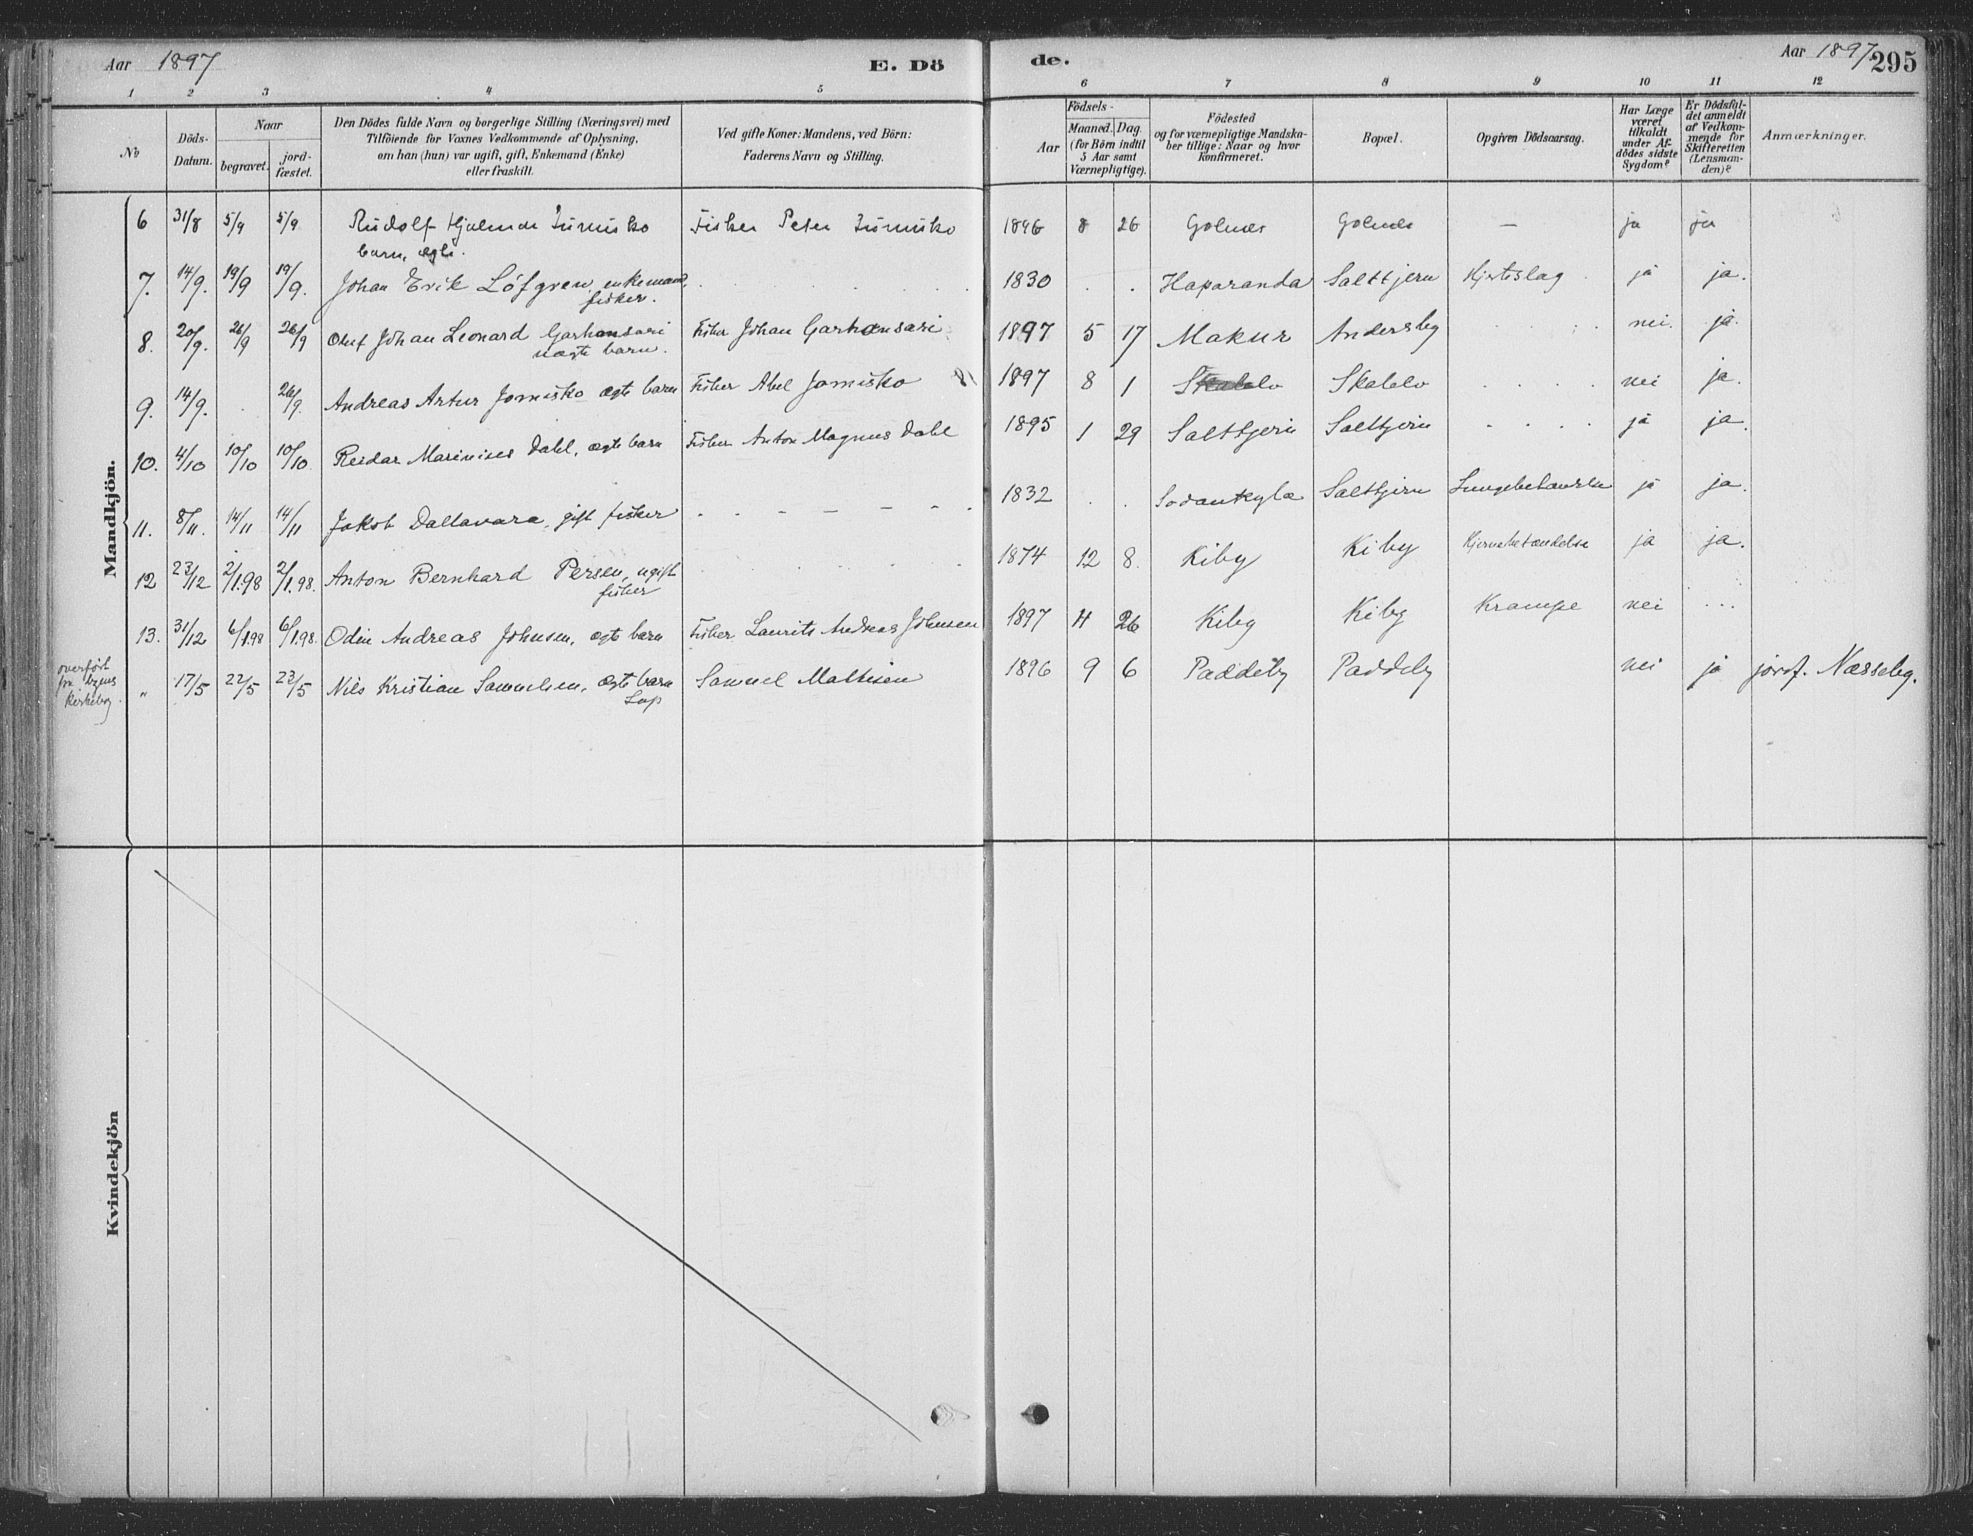 Aar 1897
E. Dö
de.
Aar 1897.
295
1 2 3 4 5 6 7 8 9 10 11 12
No
Döds-
Datum.
Naar
begravet.
jord-
fæstet.
Den Dödes fulde Navn og borgerlige Stilling (Næringsvei) med
Tilföiende for Voxnes Vedkommende af Oplysning,
om han (hun) var ugift, gift, Enkemand (Enke)
eller fraskilt.
Ved gifte Koner: Mandens, ved Börn:
Faderens Navn og Stilling.
Födsels-
Aar
Maaned. Dag
(for Börn indtil
5 Aar samt
Værnepligtige).
Födested
og for værnepligtige Mandska-
ber tillige: Naar og hvor
Konfirmeret.
Bopæl.
Opgiven Dödsaarsag.
Har Læge
været
tilkaldt
under Af-
dödes sidste
Sygdom?
Er Dödsfal-
det anmeldt
af Vedkom-
mende for
Skifteretten
(Lensman-
den)?
Anmærkninger.
Mandkjön.
6 31/8 5/9 5/9 Rudolf Hjalmar Jumisko Fisker Peter Jumisko 1896 8 26 Golnes Golnes — ja ja
barn, ægte.
7. 14/9. 19/9 19/9. Johan Erik Löfgren, enkemand, 1830 . . Haparanda Saltjern Hjerteslag ja ja.
fisker.
8. 20/9. 26/9 26/9 Oluf Johan Leonard Garhansari Fisker Johan Garhansari 1897 5 17 Makur Andersby nei. ja.
uægte barn.
9. 14/9. . 26/9. Andreas Artur Jomisko ægte barn Fisker Abel Jomisko 1897 8 1 Skalelv Skalelv nei ja.
10. 4/10 10/10 10/10 Reidar Marinius Dahl, ægte barn Fisker Anton Magnus Dahl 1895 1 29 Saltjern Saltjern ja ja.
11. 8/11. 14/11 14/11 Jakob Dallavara, gift fisker 1832 . . Sodankylæ Saltjern ja ja.
12 23/12 2/1.98 2/1.98. Anton Bernhard Persen, ugift 1874 12 8. Kiby Kiby Hjernebetændelse ja ja.
fisker
13. 31/12 6/1.98 6/1.98. Odin Andreas Johnsen, ægte barn Fisker Laurits Andreas Johnsen 1897 4 26 Kiby Kiby Krampe nei ...
overført
fra byens
Kirkebog.
" 17/5 22/5 23/5 Nils Kristian Samuelsen, ægte barn Samuel Mathisen 1896 9 6 Paddeby Paddeby nei ja jordf. Næsseby.
Lap
Kvindekjön